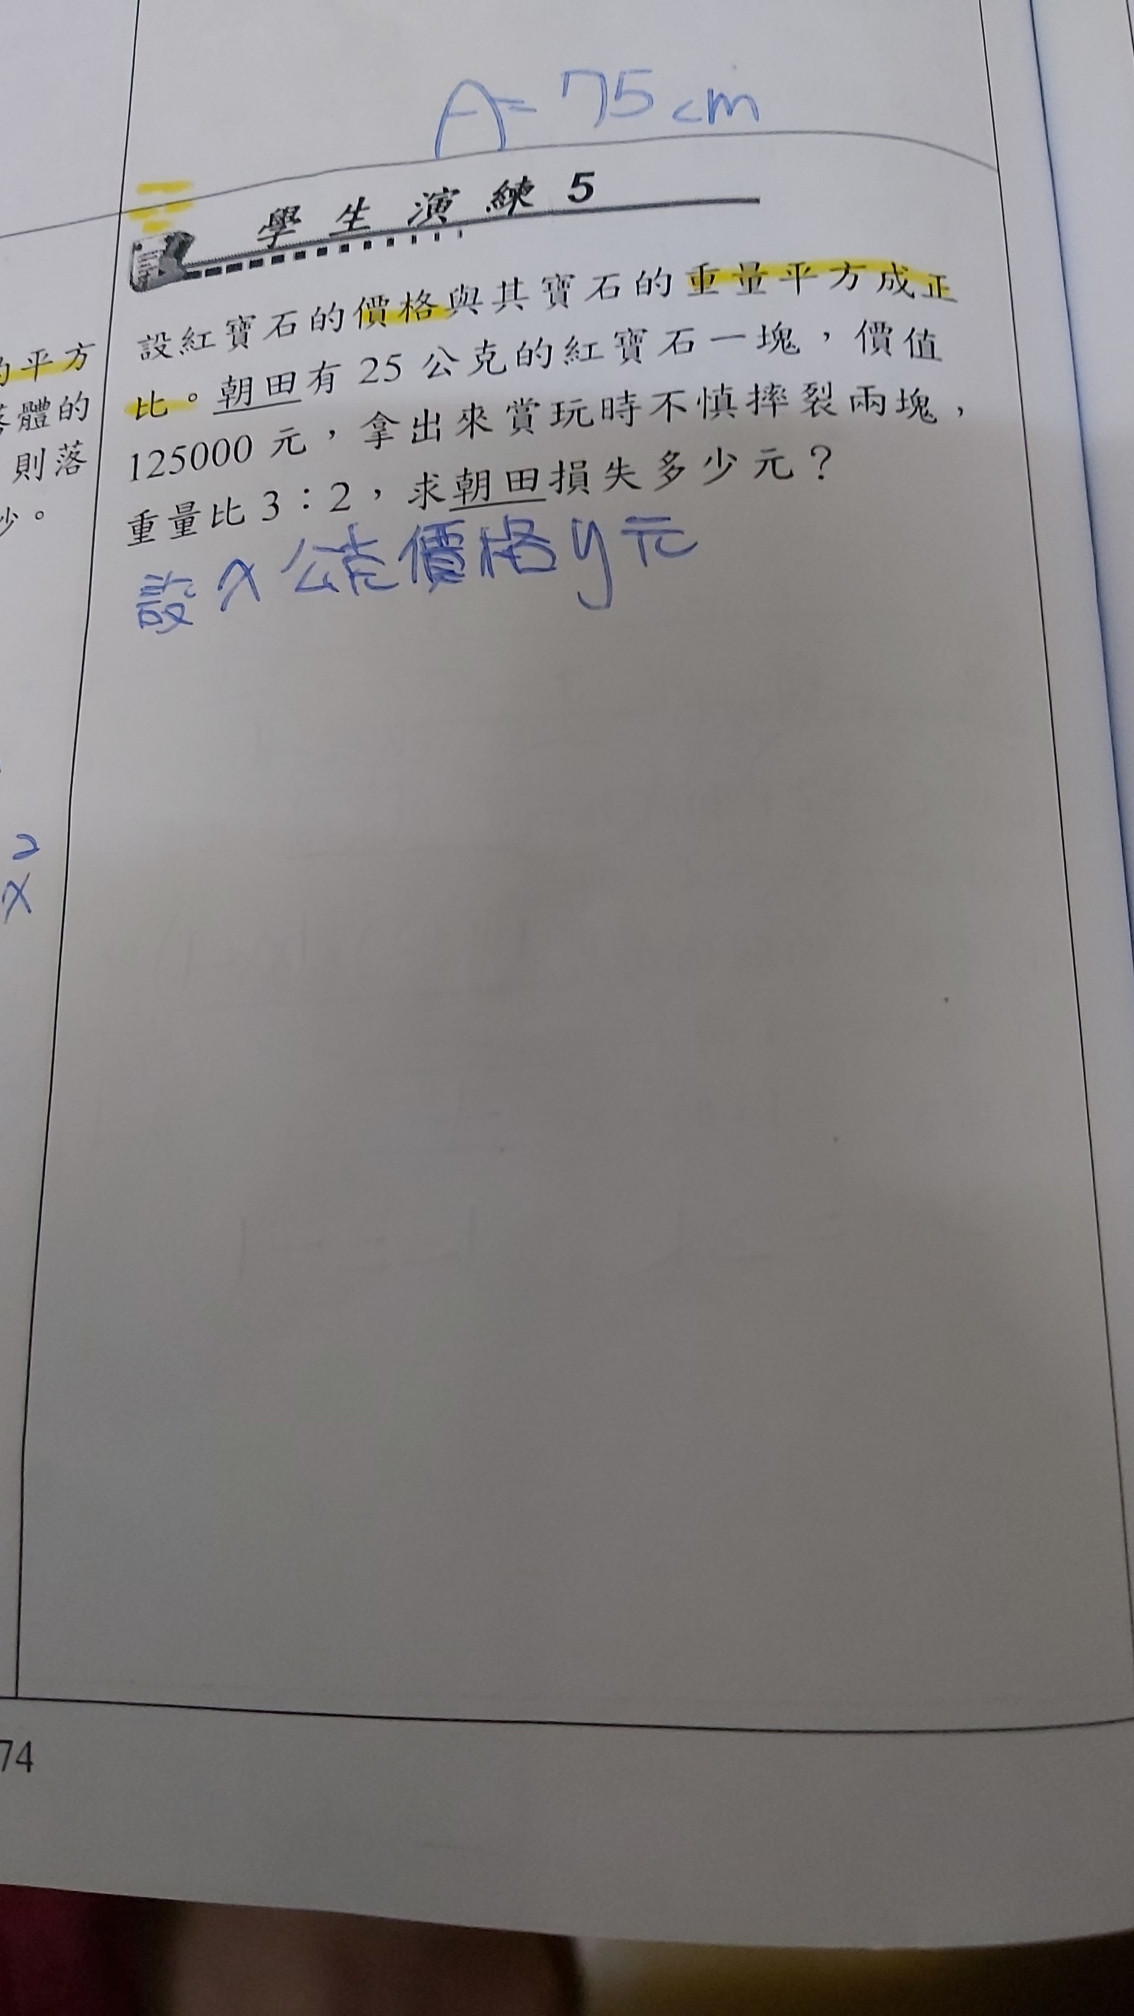 A = 75 cm
學生演練 5
設紅寶石的價格與其寶石的重量平方成正
比。朝田有 25 公克的紅寶石一塊，價值
125000 元，拿出來賞玩時不慎摔裂兩塊，
重量比 3：2，求朝田損失多少元？
設 x 公克價格 y 元
的平方
落體的
則落
秒。
2
x
74